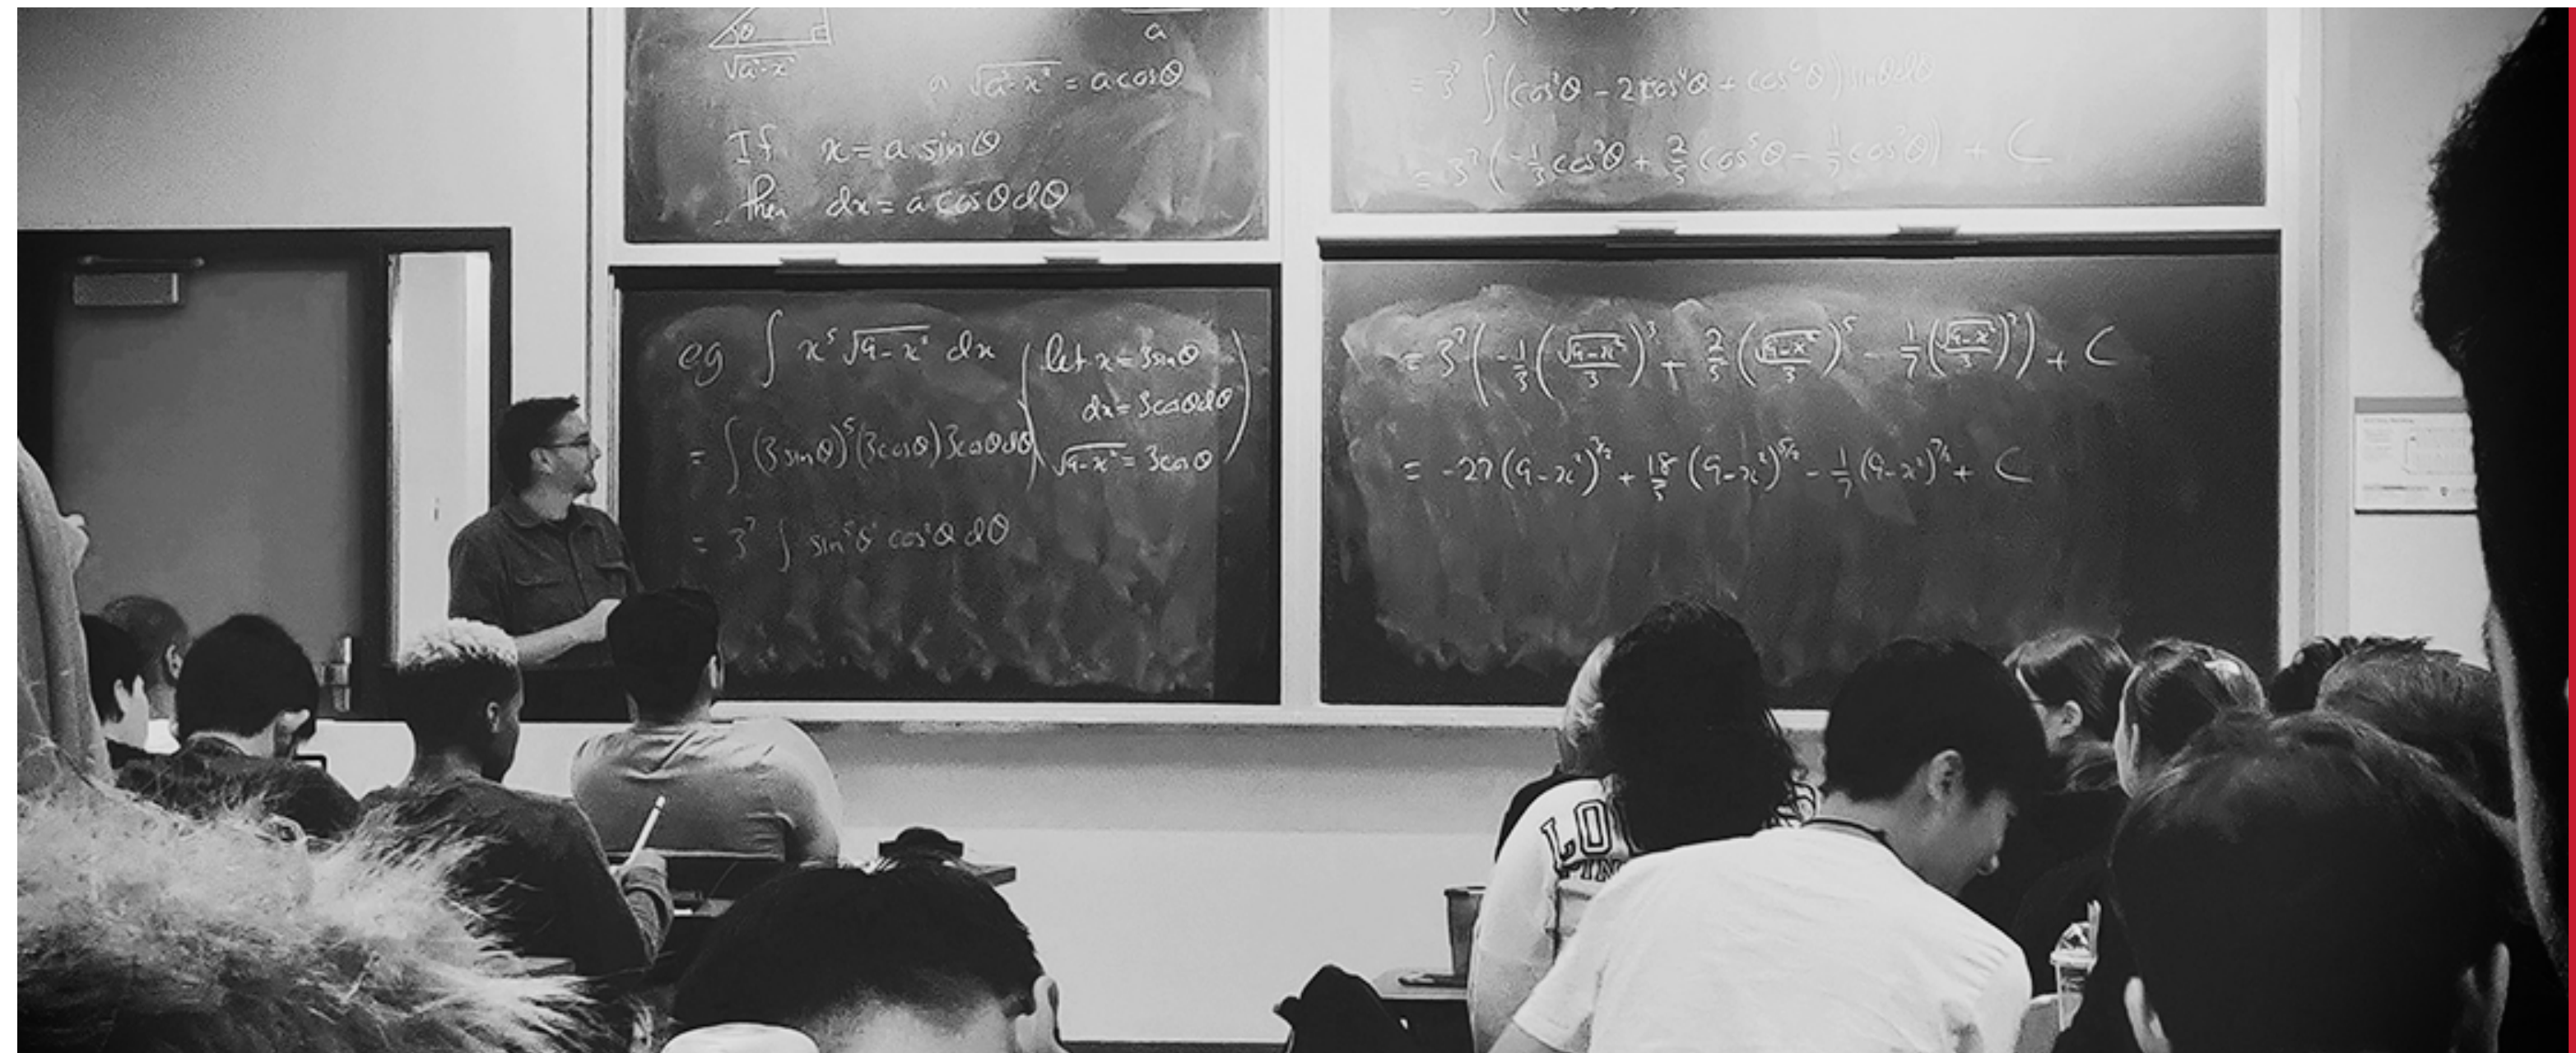 θ
√a²-x²
a
√a²-x² = a cosθ
If x = a sinθ
then dx = a cosθ dθ
eg ∫ x⁵ √9-x² dx (let x = 3sinθ
dx = 3cosθdθ
√9-x² = 3cosθ)
= ∫ (3sinθ)⁵(3cosθ)3cosθdθ
= 3⁷ ∫ sin⁵θ cos²θ dθ
= 3⁷ ∫(cos²θ - 2cos⁴θ + cos⁶θ) sinθdθ
= 3⁷ (-1/3 cos³θ + 2/5 cos⁵θ - 1/7 cos⁷θ) + C
= 3⁷ (-1/3 (√9-x²/3)³ + 2/5 (√9-x²/3)⁵ - 1/7 (√9-x²/3)⁷) + C
= -27(9-x²)^3/2 + 18/5 (9-x²)^5/2 - 1/7 (9-x²)^7/2 + C